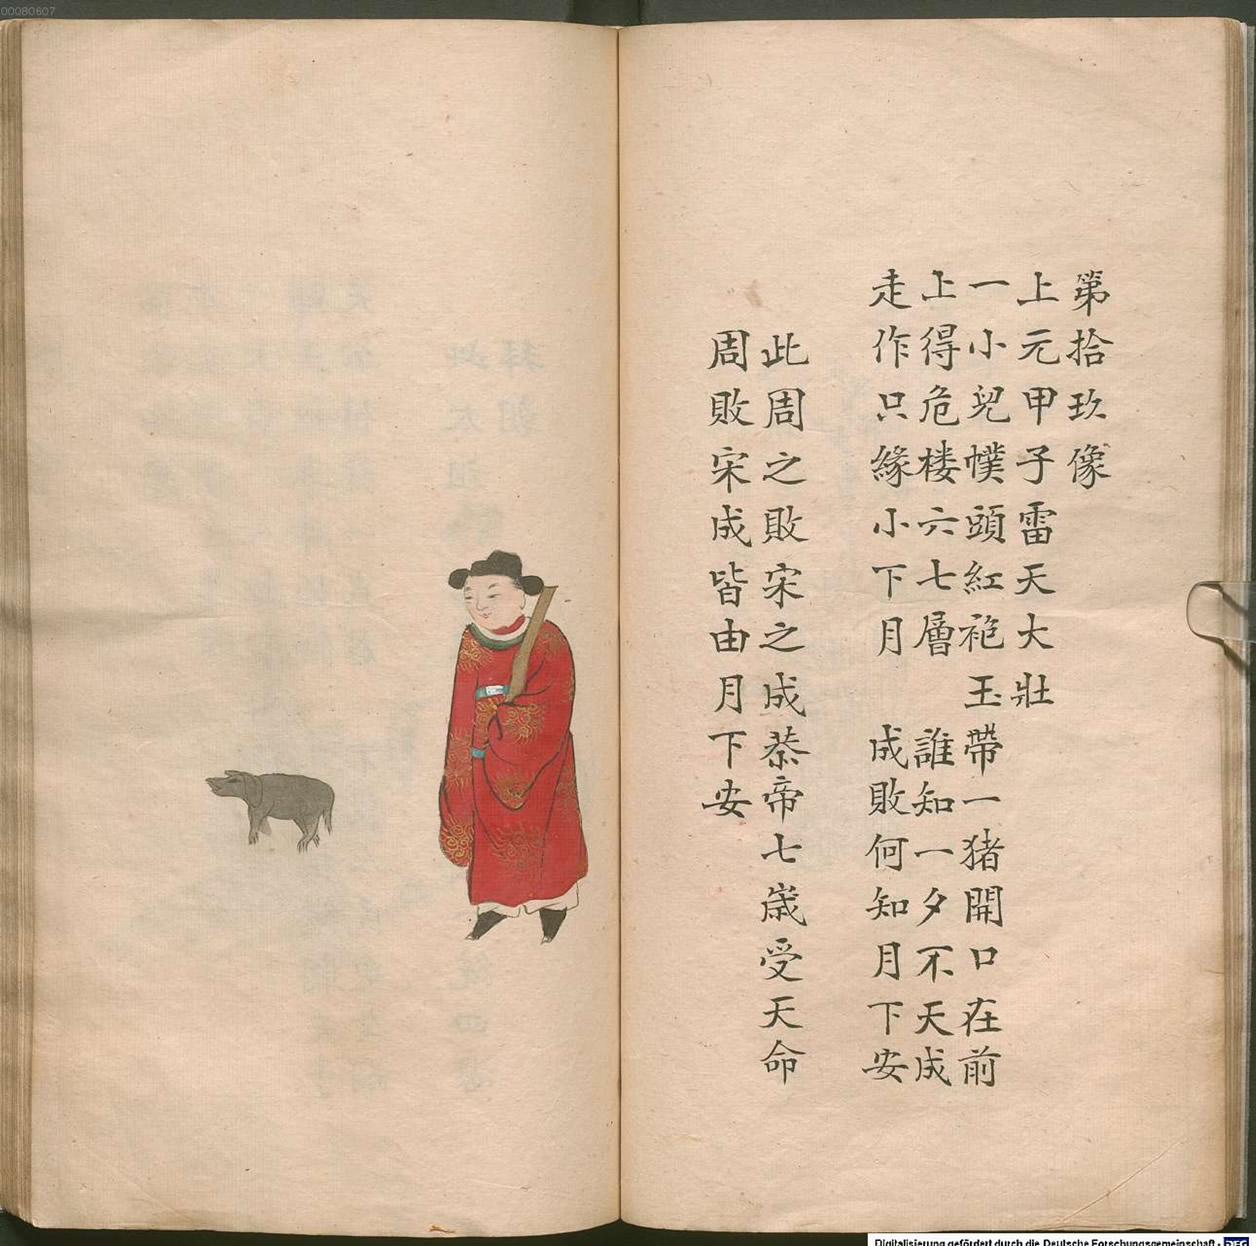 00080607
第拾玖像
上元甲子雷天大壯
一小兒幞頭紅袍玉帶一猪開口在前
上得危楼六七層 誰知一夕不天成
走作只緣小下月 成敗何知月下安
此周之敗宋之成恭帝七歲受天命
周敗宋成皆由月下安
Digitalisierung gefördert durch die Deutsche Forschungsgemeinschaft - DFG